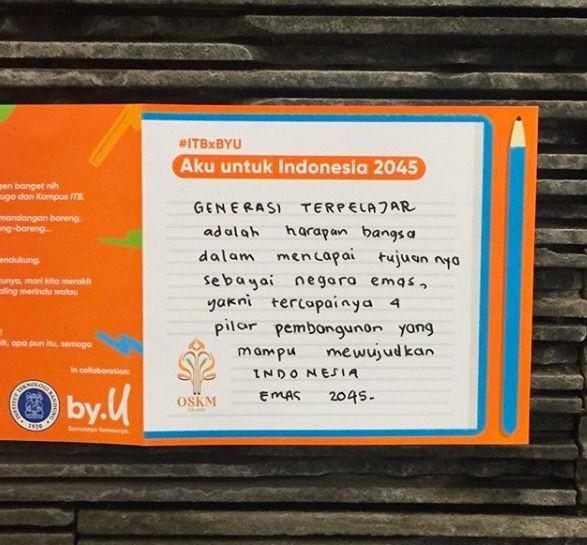 gen banget nih
uga dan Kampus ITB.
mandangan bareng,
ng-bareng...
endukung.
tunya, mari kita merakit
aling merindu walau
ik, apa pun itu, semoga
in collaboration:
INSTITUT TEKNOLOGI BANDUNG
1920
by.U
Semuanya Semaunya.
#ITBxBYU
Aku untuk Indonesia 2045
GENERASI TERPELAJAR
adalah harapan bangsa
dalam mencapai tujuannya
sebagai negara emas,
yakni tercapainya 4
pilar pembangunan yang
mampu mewujudkan
INDONESIA
EMAS 2045.
OSKM